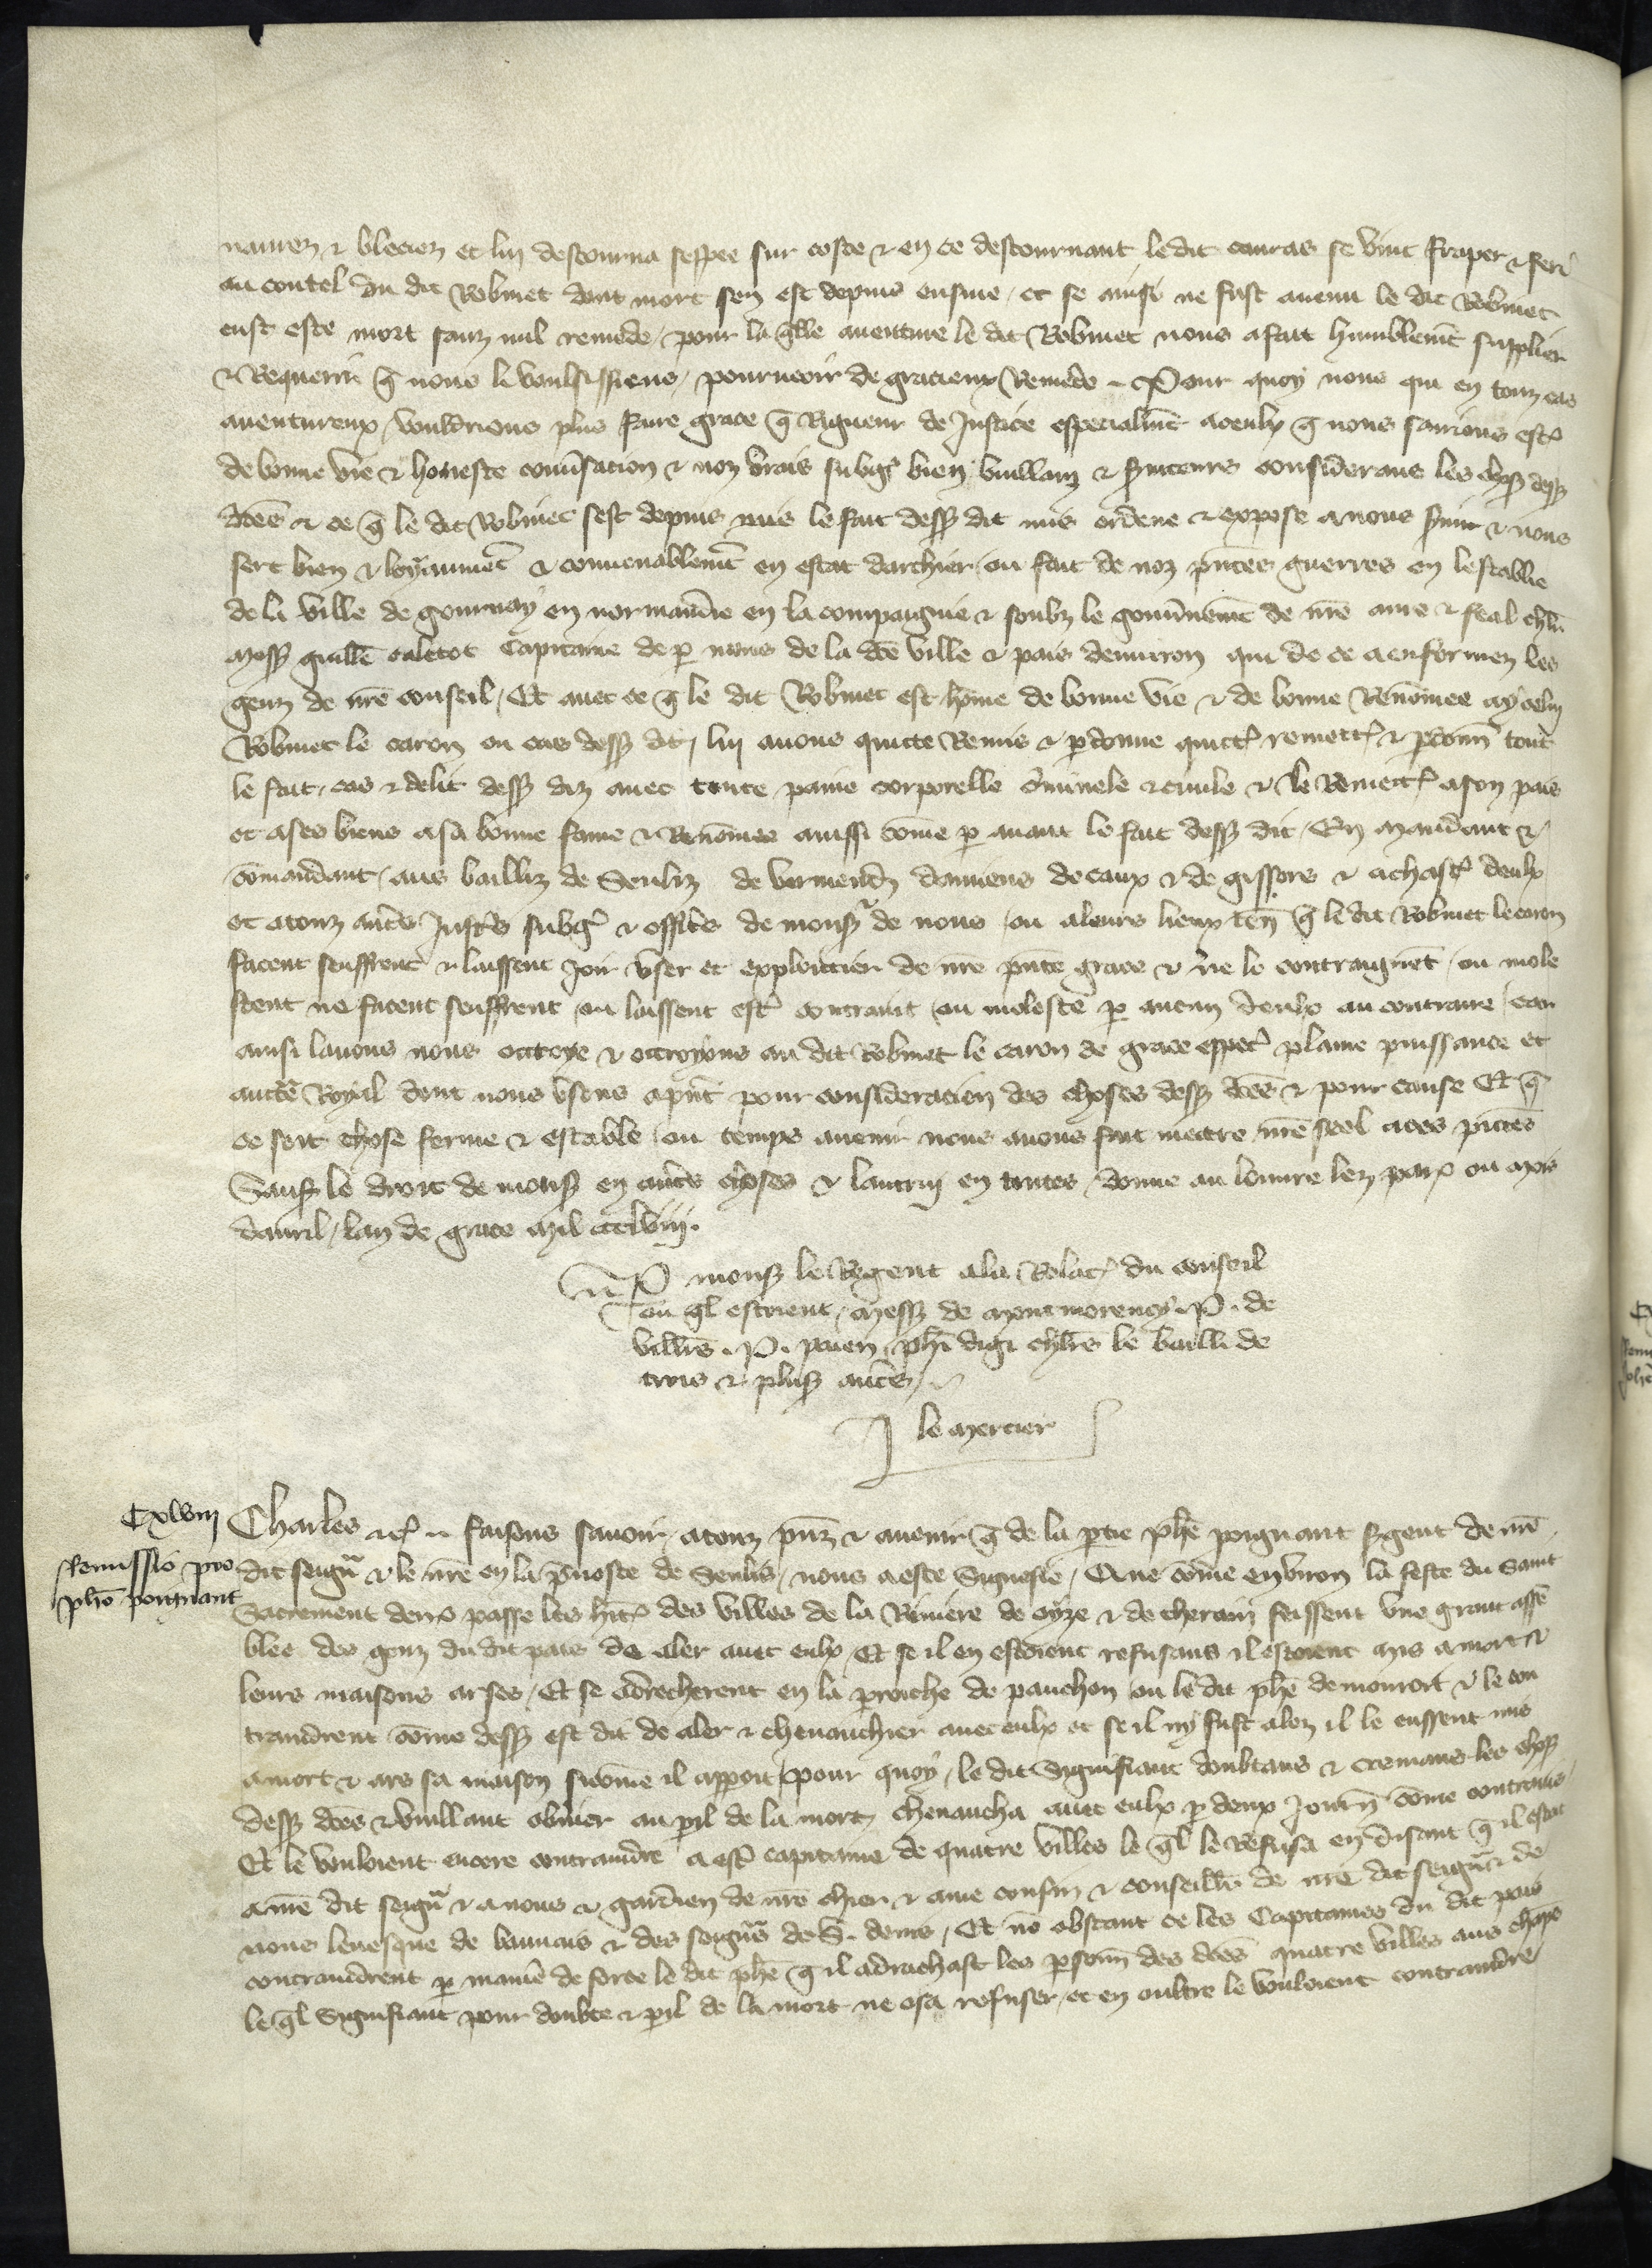 naurez & bleciez et lui destourna sespee sur coste & en ce destournant ledit couras se vint fraper & feri
au coutel du dit Robinet dont mort sen est depuis ensuie / et se ainsi ne fust auenu le dit Robinet
eust este mort sanz nul remede / pour la qlle auenture le dit Robinet nous a fait humblemt supplier
& Requerir q nous li voulsissiens / pourueoir de gracieux Remede ~ Pour quoy nous qui en touz cas
auentureux / vouldrions plus faire grace q Rigueur de Justice especialmt a ceulx q nous saurions estr
de bonne vie & honeste conusacion & noz vrais subgs bien vuillanz & suiteurs considerans les choses dess
dces & ce q le dit Robinet sest depuis puis le fait dess dit mis ordene & expose a nous suir & nous
sert bien & loyaumet & conuenablemt en estat darchier / ou fait de noz pntes guerres en lestablie
de la ville de gournay en normandie en la compaignie & soubz le gouunemt de nre ame & feal chlr
mess guille caletot Capitaine de p nous de la dce ville & pais denuiron qui de ce a enformez les
genz de nre conseil / Et auec ce q le dit Robinet est hõme de bonne vie & de bonne Renõmee a ycelui
Robinet le caron ou cas dess dit / lui auons quicte Remis & pdonne quictr remettr & pdonn tout
le fait / cas & delit dess diz auec toute paine corporelle criminele & ciuile & le Remettr a son pais
et a ses biens a sa bonne fame & Renõmee aussi cõme p auant le fait dess dit / En mandant &
cõmandant / aus bailliz de Senliz de vermend damiens de caux & de gissors & a chascr deulx
et a touz autes Justes subgs & offices de monss de nous / ou a leurs lieux ten q le dit Robinet le caron
facent seuffrent & laissent Joir vser et exploictier de nre pnte grace & ne le contraignet / ou mole
stent ne facent seuffrent / ou laissent estr contraint / ou moleste p aucun deulx au contraire / car
ainsi lauons nous ottroye & ottroyons au dit Robinet le caron de grace especl plaine puissance et
aucte Royal dont nous vsons apnt pour consideracion des choses dess dces & pour cause Et q
ce soit chose ferme & estable / ou temps auenir nous auons fait mettre nre seel a ces pntes
Sauf le droit de monss en autes choses & lautrui en toutes / donne au louure lez parx ou mois
dauril / lan de grace mil ccclviij.
P monss le Regent a la Relacr du conseil
ou ql estoient / mess de montmorency. P. de
villrs. P. pauen phe digi chlrs le bailli de
troies & pluss autes
J le mercier
Cxlviij
Remissio pro
pho poignant
Charles &c faisons sauoir / a touz pnz & auenir q de la ptie phe poignant sgent de nre
dit seigr & le nre en la puoste de Senlis / nous a este Signefie / Que cõme enuiron la feste du saint
Sacrement derrx passe les hitr des villes de la Riuiere de oyze & de cherain feissent vne grant assẽ
blee des genz du dit pais de aler auec eulx / Et se il en estoient refusans il estoient mis a mort &
leurs maisons arses / Et se adrecherent en la proiche de pauchon ou le dit phe demouroit & le con
traindrent cõme dess est dit de aler & cheuauchier auec eulx et se il ny fust alez il le eussent mis
a mort & ars sa maison sicõme il apparoit / pour quoy / le dit Signifiant doubtans & cremans les chos
dess dces & vuillant obuier au pil de la mort / cheuaucha auec eulx p deux Journ cõme contrains /
Et le vouloient encore contraindre a estr capitaine de quatre villes le ql le Refusa en disant q il estoit
a nre dit seigr & a nous & gardien de nre chier & ame cousin & conseillr de nre dit seigr & de
nous leuesque de biauuais & des seigrs de S. denis / Et nõ obstant ce les Capitaines du dit pais
contraindrent p manie de force le dit phe q il adrachast les psonn des dces quatre villes aus champs
le ql Signifiant pour doubte & pil de la mort ne osa refuser / et en oultre le vouloient contraindre